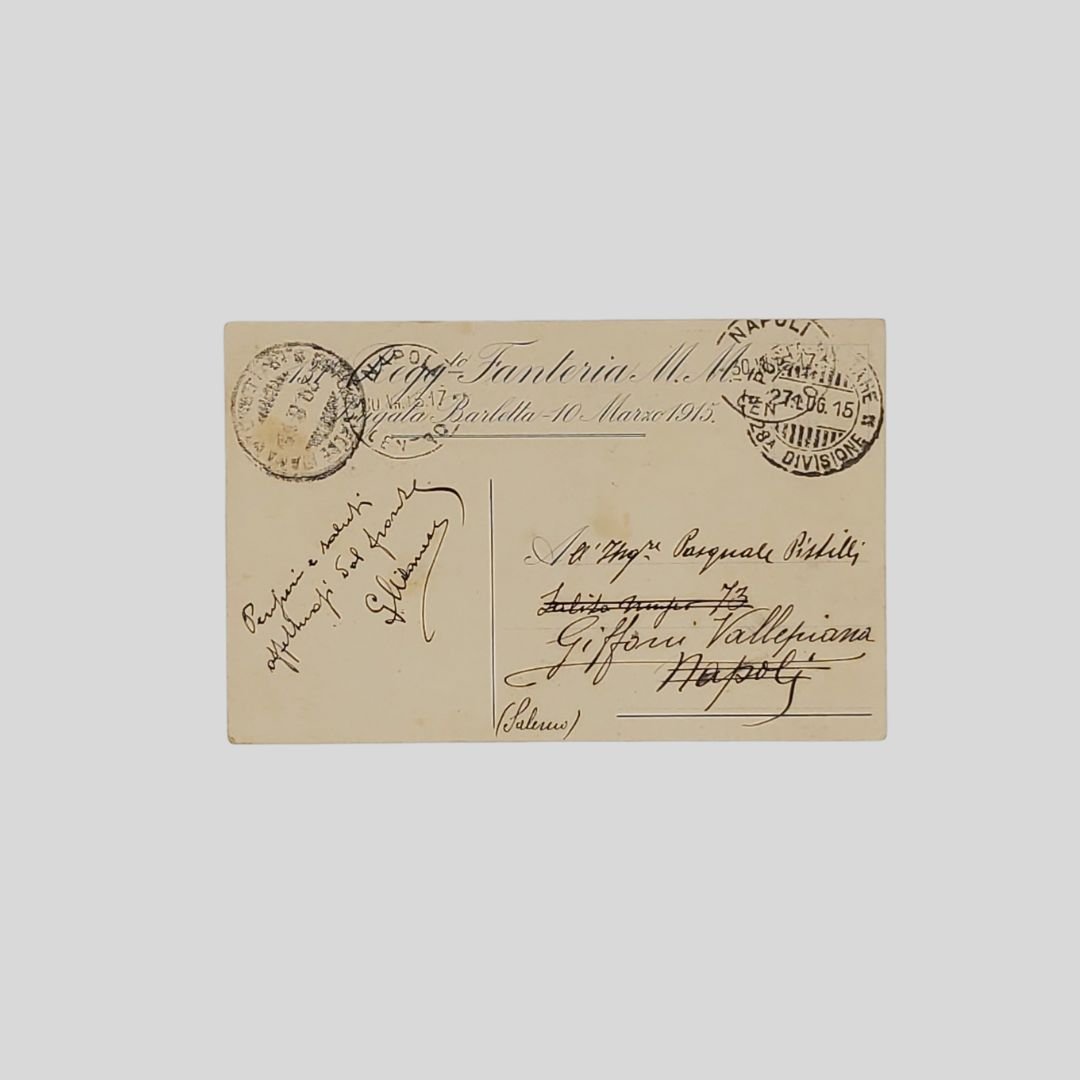 137 Regg.to Fanteria M. M.
Brigata Barletta - 10 Marzo 1915.
NAPOLI
NAPOLI
27.06.15
28A DIVISIONE
Pensieri e saluti
affettuosi dal fronte
All' Ing.re Pasquale Pistilli
Salita 73
Giffoni Vallepiana
Napoli
(Salerno)